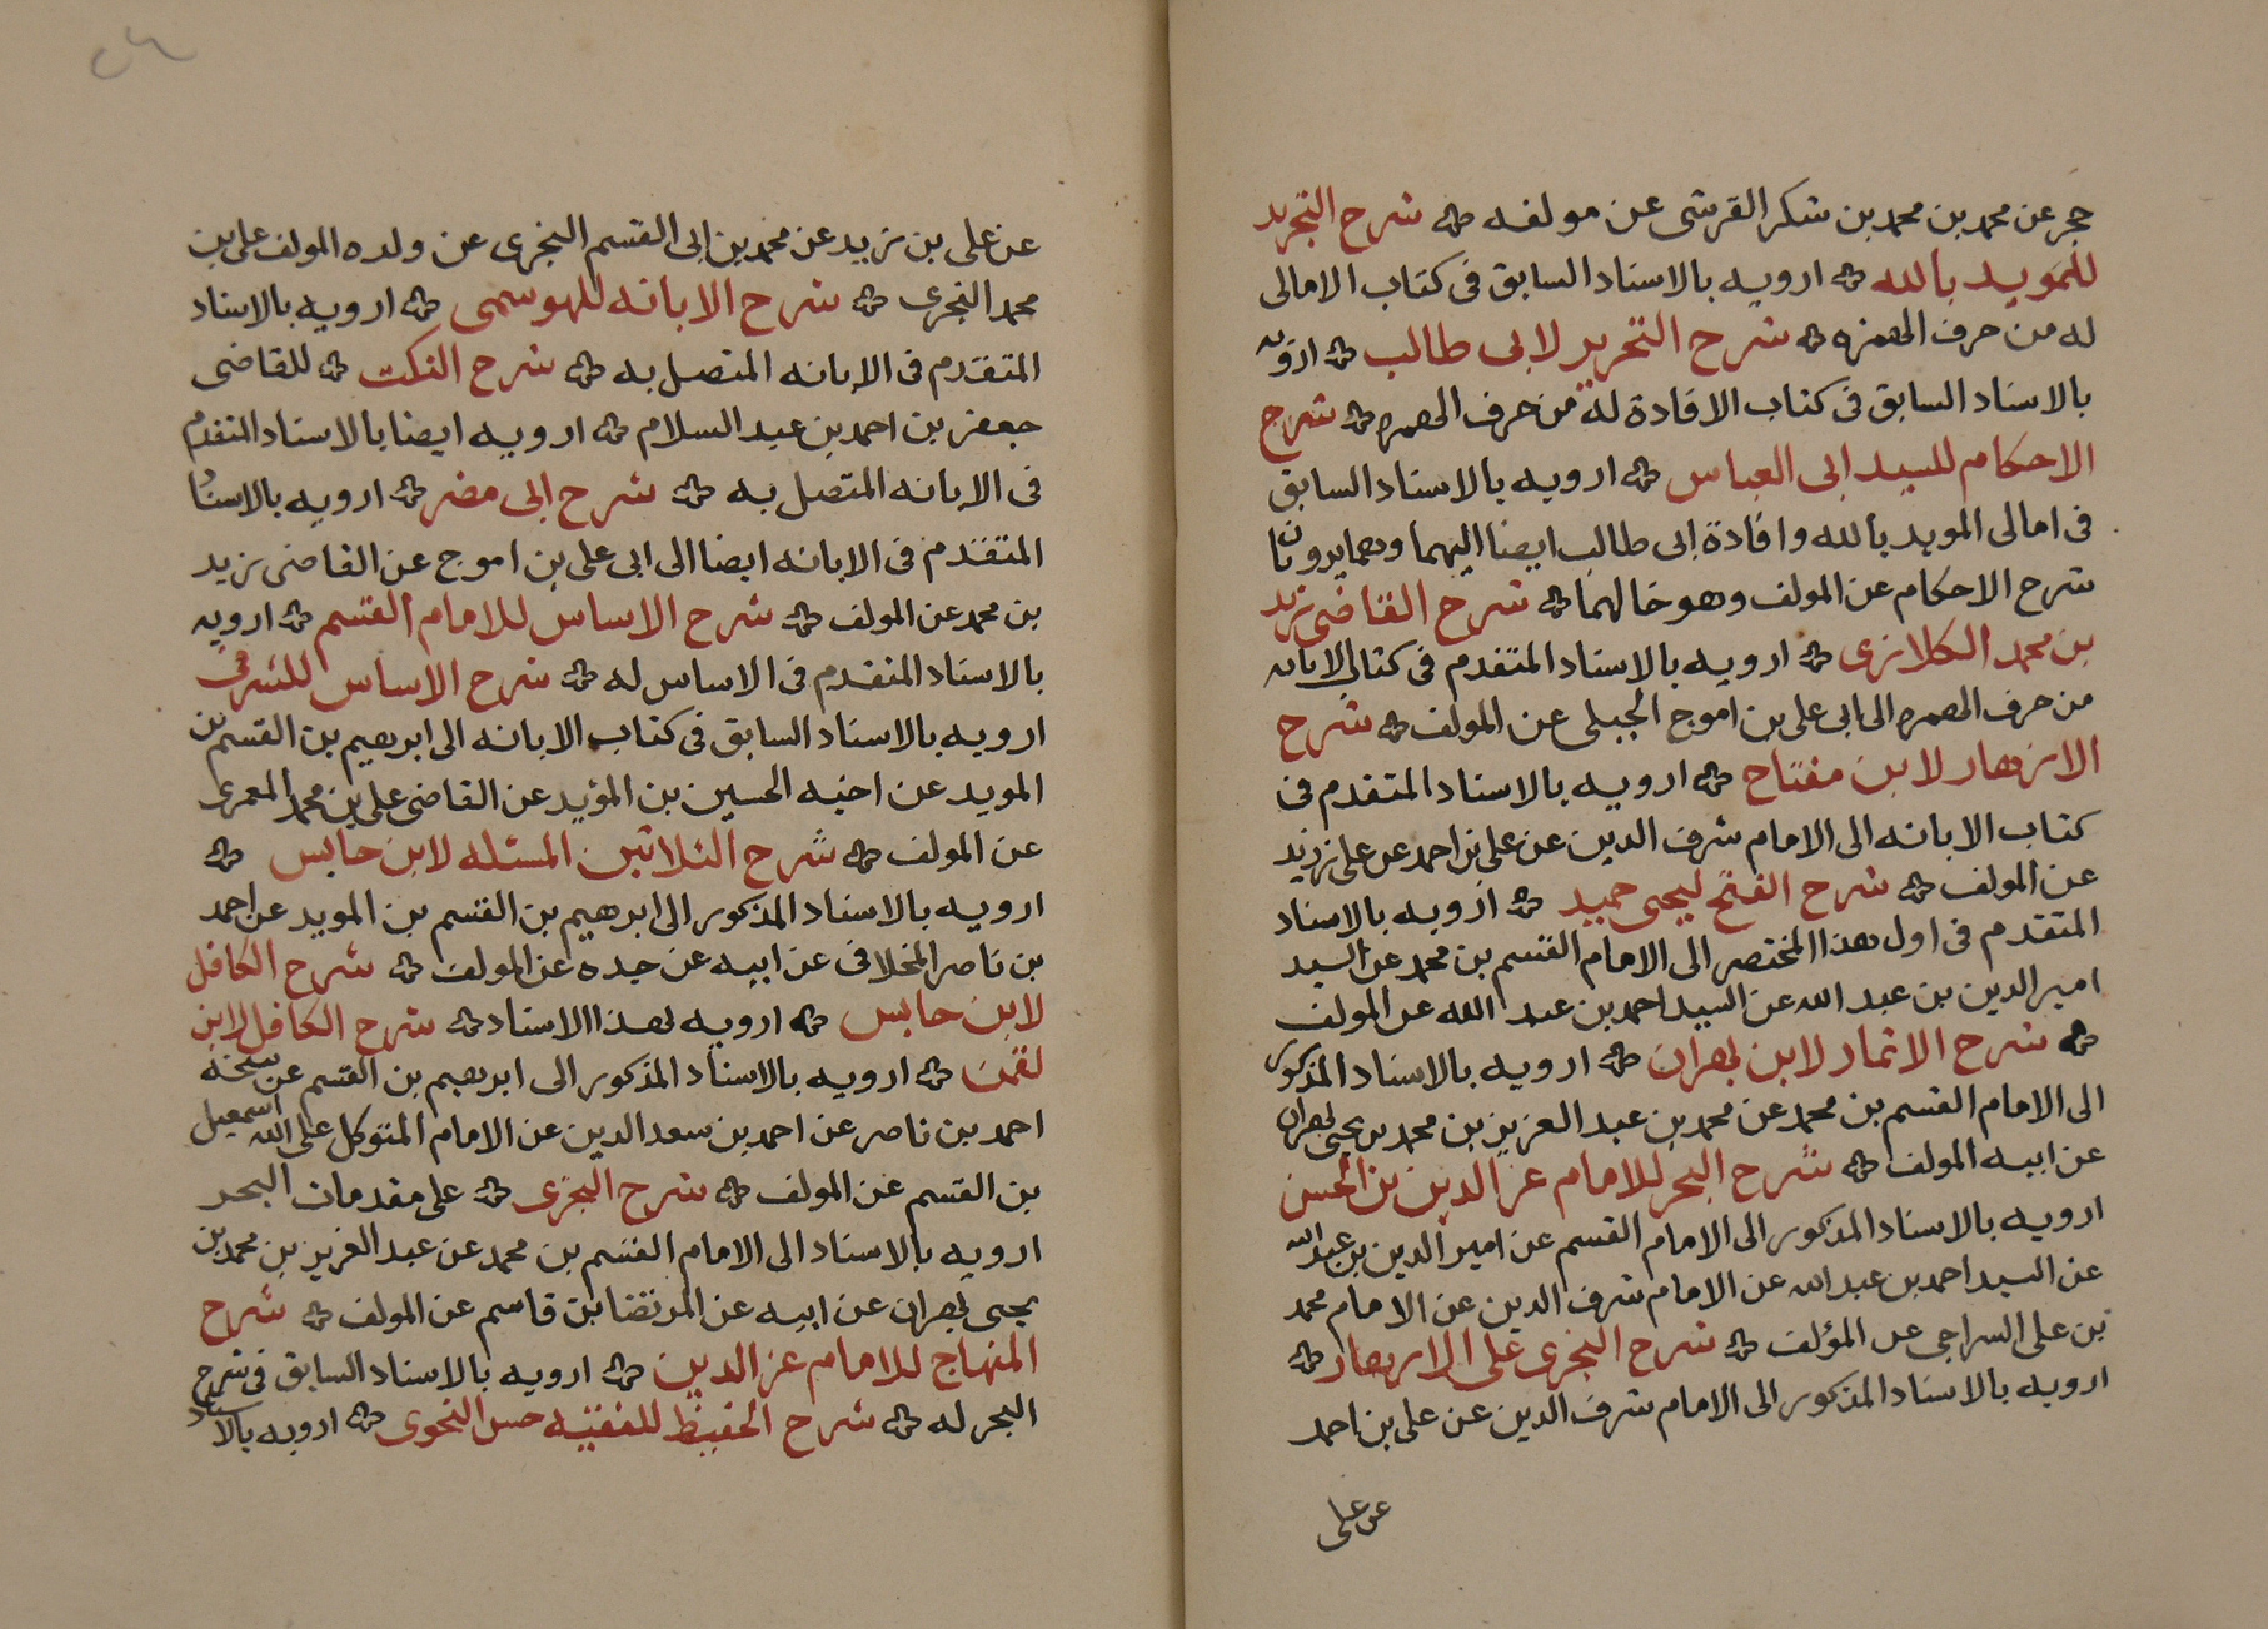 حجر عن محمد بن محمد بن شكر القرشى عن مولفه شرح التجريد
للمويد بالله ارويه بالاسناد السابق فى كتاب الامالى
له من حرف الهمزه شرح التحرير لابى طالب ارويه
بالاسناد السابق فى كتاب الافادة له من حرف الهمزه شرح
الاحكام للسيد ابى العباس ارويه بالاسناد السابق
فى امالى المويد بالله وافادة ابى طالب ايضا اليهما وهما يرويان
شرح الاحكام عن المولف وهو خالهما شرح القاضى زيد
بن محمد الكلارى ارويه بالاسناد المتقدم فى كتاب الابانه
من حرف الهمزه الى ابى على بن اموج الجبلى عن المولف شرح
الازهار لابن مفتاح ارويه بالاسناد المتقدم فى
كتاب الابانه الى الامام شرف الدين عن على بن احمد عن على بن زيد
عن المولف شرح الفتح ليحيى حميد ارويه بالاسناد
المتقدم فى اول هذا المختصر الى الامام القسم بن محمد عن السيد
امير الدين بن عبد الله عن السيد احمد بن عبد الله عن المولف
شرح الاثمار لابن بهران ارويه بالاسناد المذكور
الى الامام القسم بن محمد عن محمد بن عبد العزيز بن محمد بن يحيى بهران
عن ابيه المولف شرح البحر للامام عز الدين بن الحسن
ارويه بالاسناد المذكور الى الامام القسم عن امير الدين بن عبد الله
عن السيد احمد بن عبد الله عن الامام شرف الدين عن الامام محمد
بن على السراجى عن المؤلف شرح النجرى على الازهار
ارويه بالاسناد المذكور الى الامام شرف الدين عن على بن احمد
عن على
عن على بن زيد عن محمد بن ابى القسم النجرى عن ولده المولف على بن
محمد النجرى شرح الابانه للهوسمى ارويه بالاسناد
المتقدم فى الابانه المتصل به شرح النكت للقاضى
جعفر بن احمد بن عبد السلام ارويه ايضا بالاسناد المتقدم
فى الابانه المتصل به شرح ابى مضر ارويه بالاسناد
المتقدم فى الابانه ايضا الى ابى على بن اموج عن القاضى زيد
بن محمد عن المولف شرح الاساس للامام القسم ارويه
بالاسناد المتقدم فى الاساس له شرح الاساس للشرفى
ارويه بالاسناد السابق فى كتاب الابانه الى ابرهيم بن القسم بن
المويد عن اخيه الحسين بن المؤيد عن القاضى على بن محمد المعمرى
عن المولف شرح الثلاثين المسئله لابن حابس
ارويه بالاسناد المذكور الى ابرهيم بن القسم بن المويد عن احمد
بن ناصر المخلافى عن ابيه عن جده عن المولف شرح الكافل
لابن حابس ارويه بهذا الاسناد شرح الكافل لابن
لقمن ارويه بالاسناد المذكور الى ابرهيم بن القسم عن شيخه
احمد بن ناصر عن احمد بن سعد الدين عن الامام المتوكل على الله اسمعيل
بن القسم عن المولف شرح النجرى على مقدمات البحر
ارويه بالاسناد الى الامام القسم بن محمد عن عبد العزيز بن محمد بن
يحيى بهران عن ابيه عن المرتضا بن قاسم عن المولف شرح
المنهاج للامام عز الدين ارويه بالاسناد السابق فى شرح
البحر له شرح الحفيظ للفقيه حسن النحوى ارويه بالاسناد